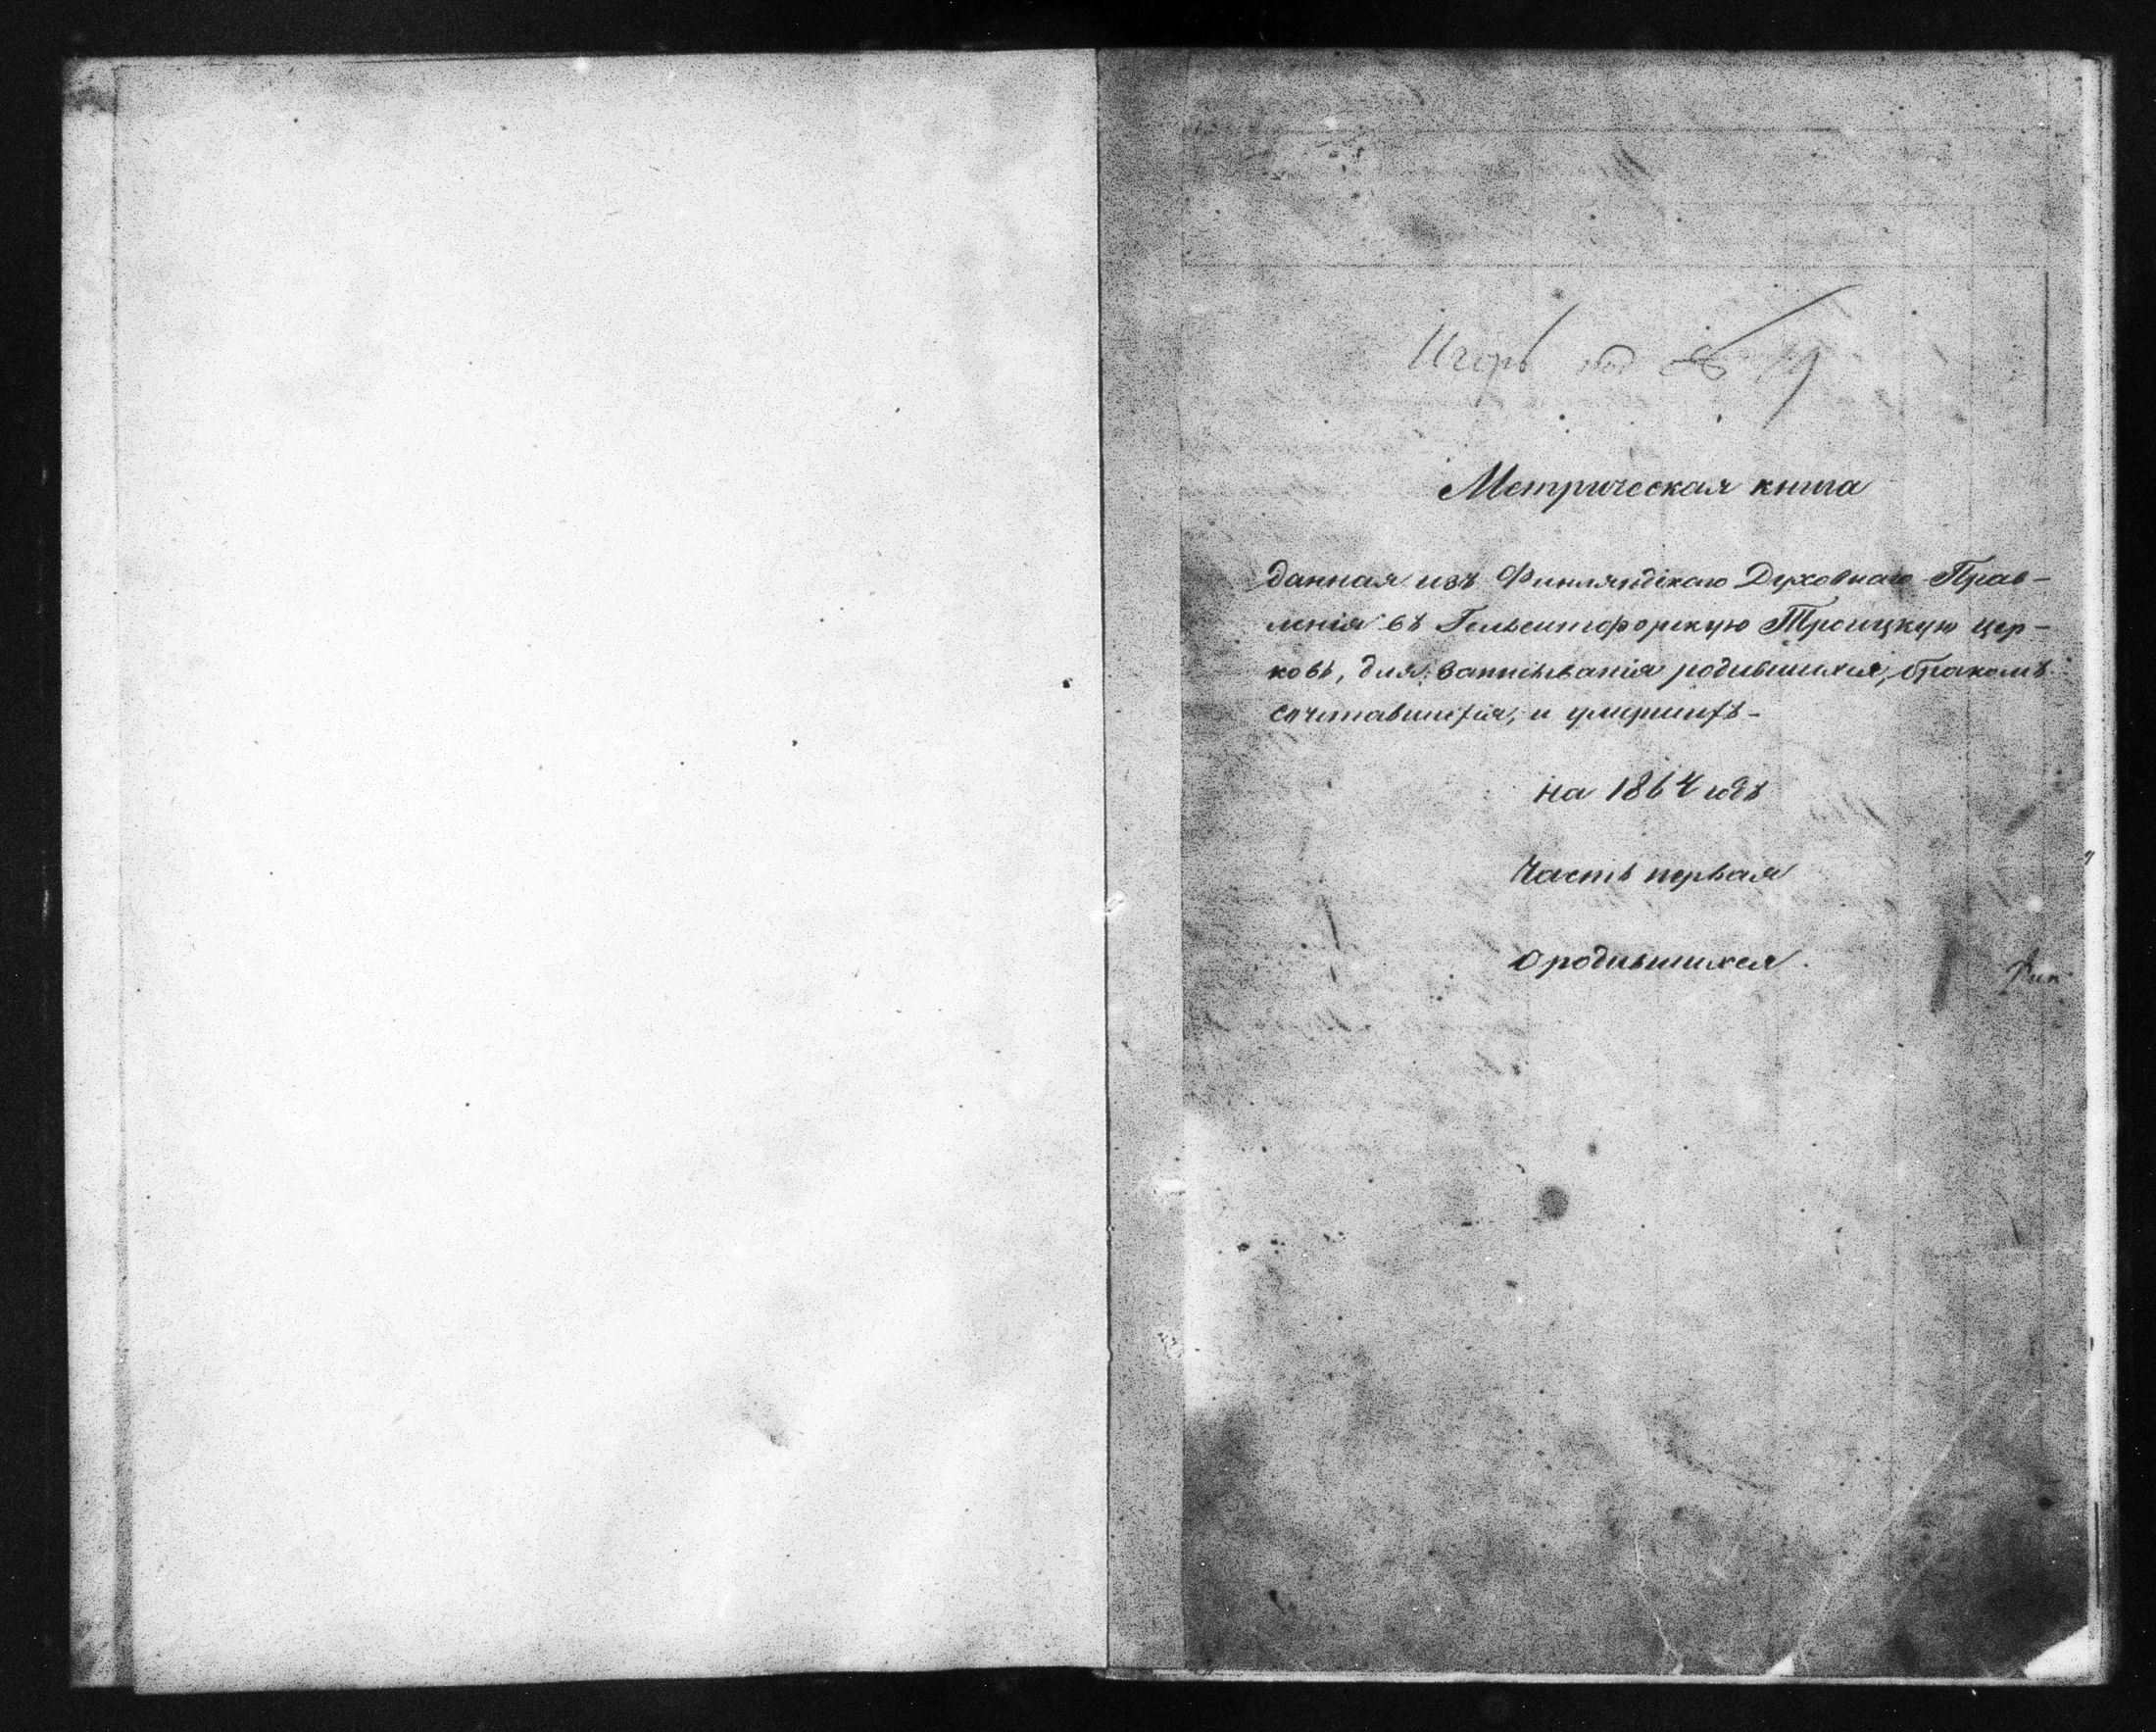 Игорь под № 19
Метрическая книга
данная изъ Финляндскаго Духовнаго Прав-
ленія въ Гельсингфорскую Троицкую цер-
ковь, для записыванія родившихся, бракомъ
сочетавшихся, и умершихъ-
на 1864 годъ
Часть первая
О родившихся.